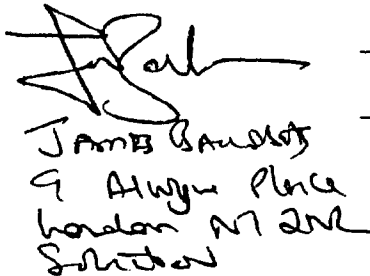 JAMES
9 Alwyne Place
London N1 2NL
Solicitor